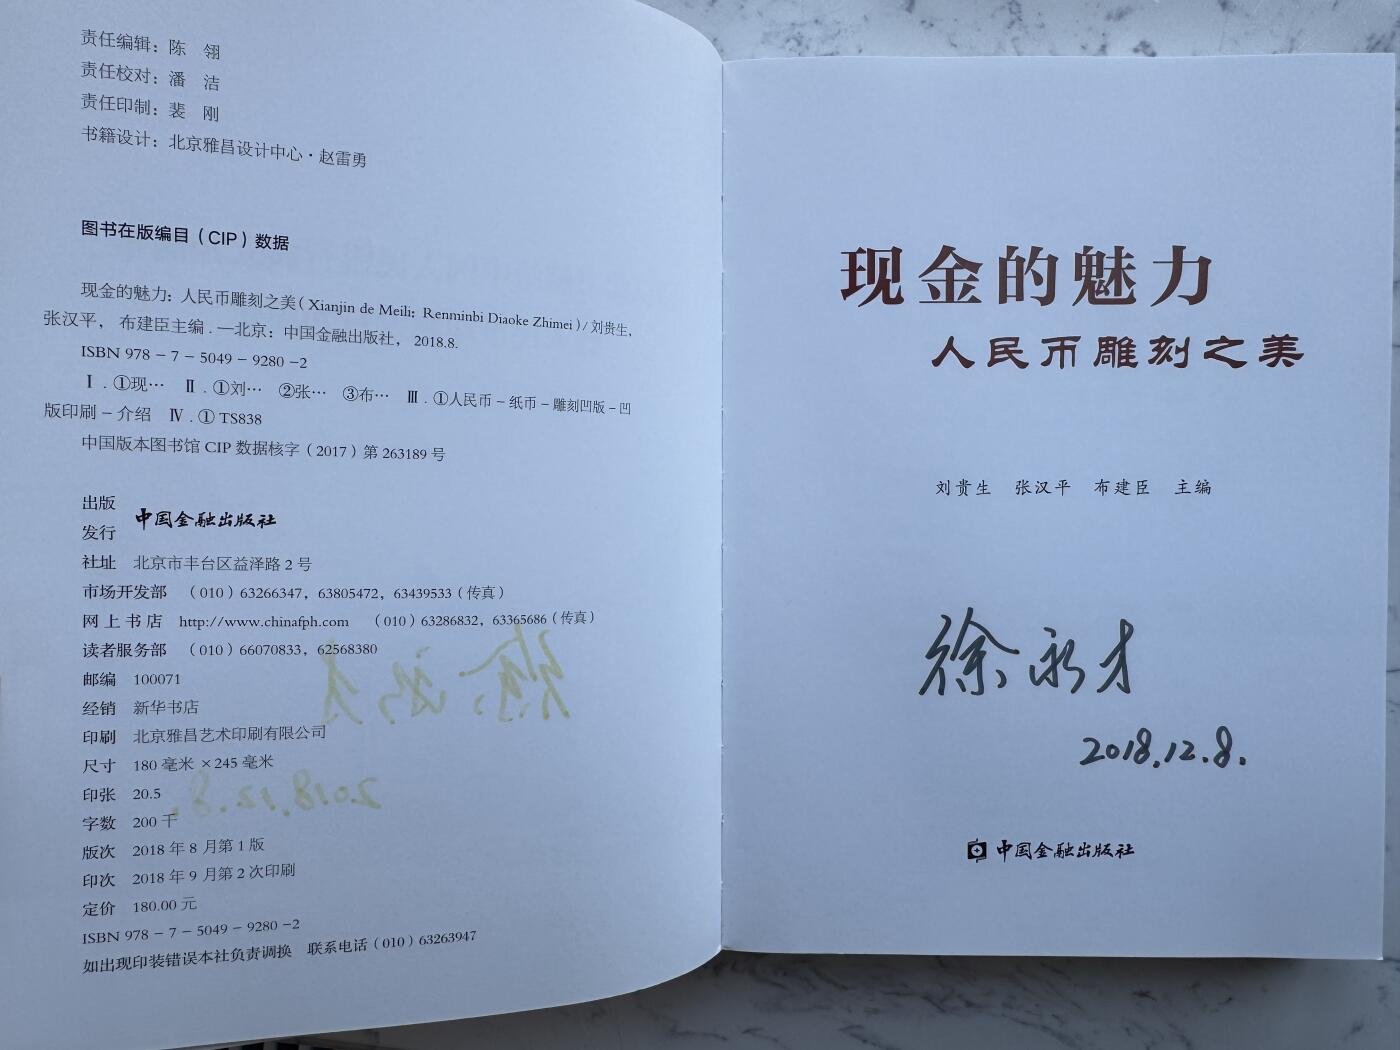 责任编辑：陈　翎
责任校对：潘　洁
责任印制：裴　刚
书籍设计：北京雅昌设计中心·赵雷勇
图书在版编目（CIP）数据
现金的魅力：人民币雕刻之美（Xianjin de Meili：Renminbi Diaoke Zhimei）/ 刘贵生，
张汉平，布建臣主编 . —北京：中国金融出版社，2018.8.
ISBN 978 – 7 – 5049 – 9280 –2
Ⅰ . ①现… Ⅱ . ①刘… ②张… ③布… Ⅲ . ①人民币 – 纸币 – 雕刻凹版 – 凹
版印刷 – 介绍 Ⅳ . ① TS838
中国版本图书馆 CIP 数据核字（2017）第 263189 号
出版
发行 中国金融出版社
社址 北京市丰台区益泽路 2 号
市场开发部 （010）63266347，63805472，63439533（传真）
网上书店 http://www.chinafph.com （010）63286832，63365686（传真）
读者服务部 （010）66070833，62568380
邮编 100071
经销 新华书店
印刷 北京雅昌艺术印刷有限公司
尺寸 180 毫米 ×245 毫米
印张 20.5
字数 200 千
版次 2018 年 8 月第 1 版
印次 2018 年 9 月第 2 次印刷
定价 180.00 元
ISBN 978 – 7 – 5049 – 9280 –2
如出现印装错误本社负责调换 联系电话（010）63263947
现金的魅力
人民币雕刻之美
刘贵生 张汉平 布建臣 主编
徐永才
2018.12.8.
中国金融出版社